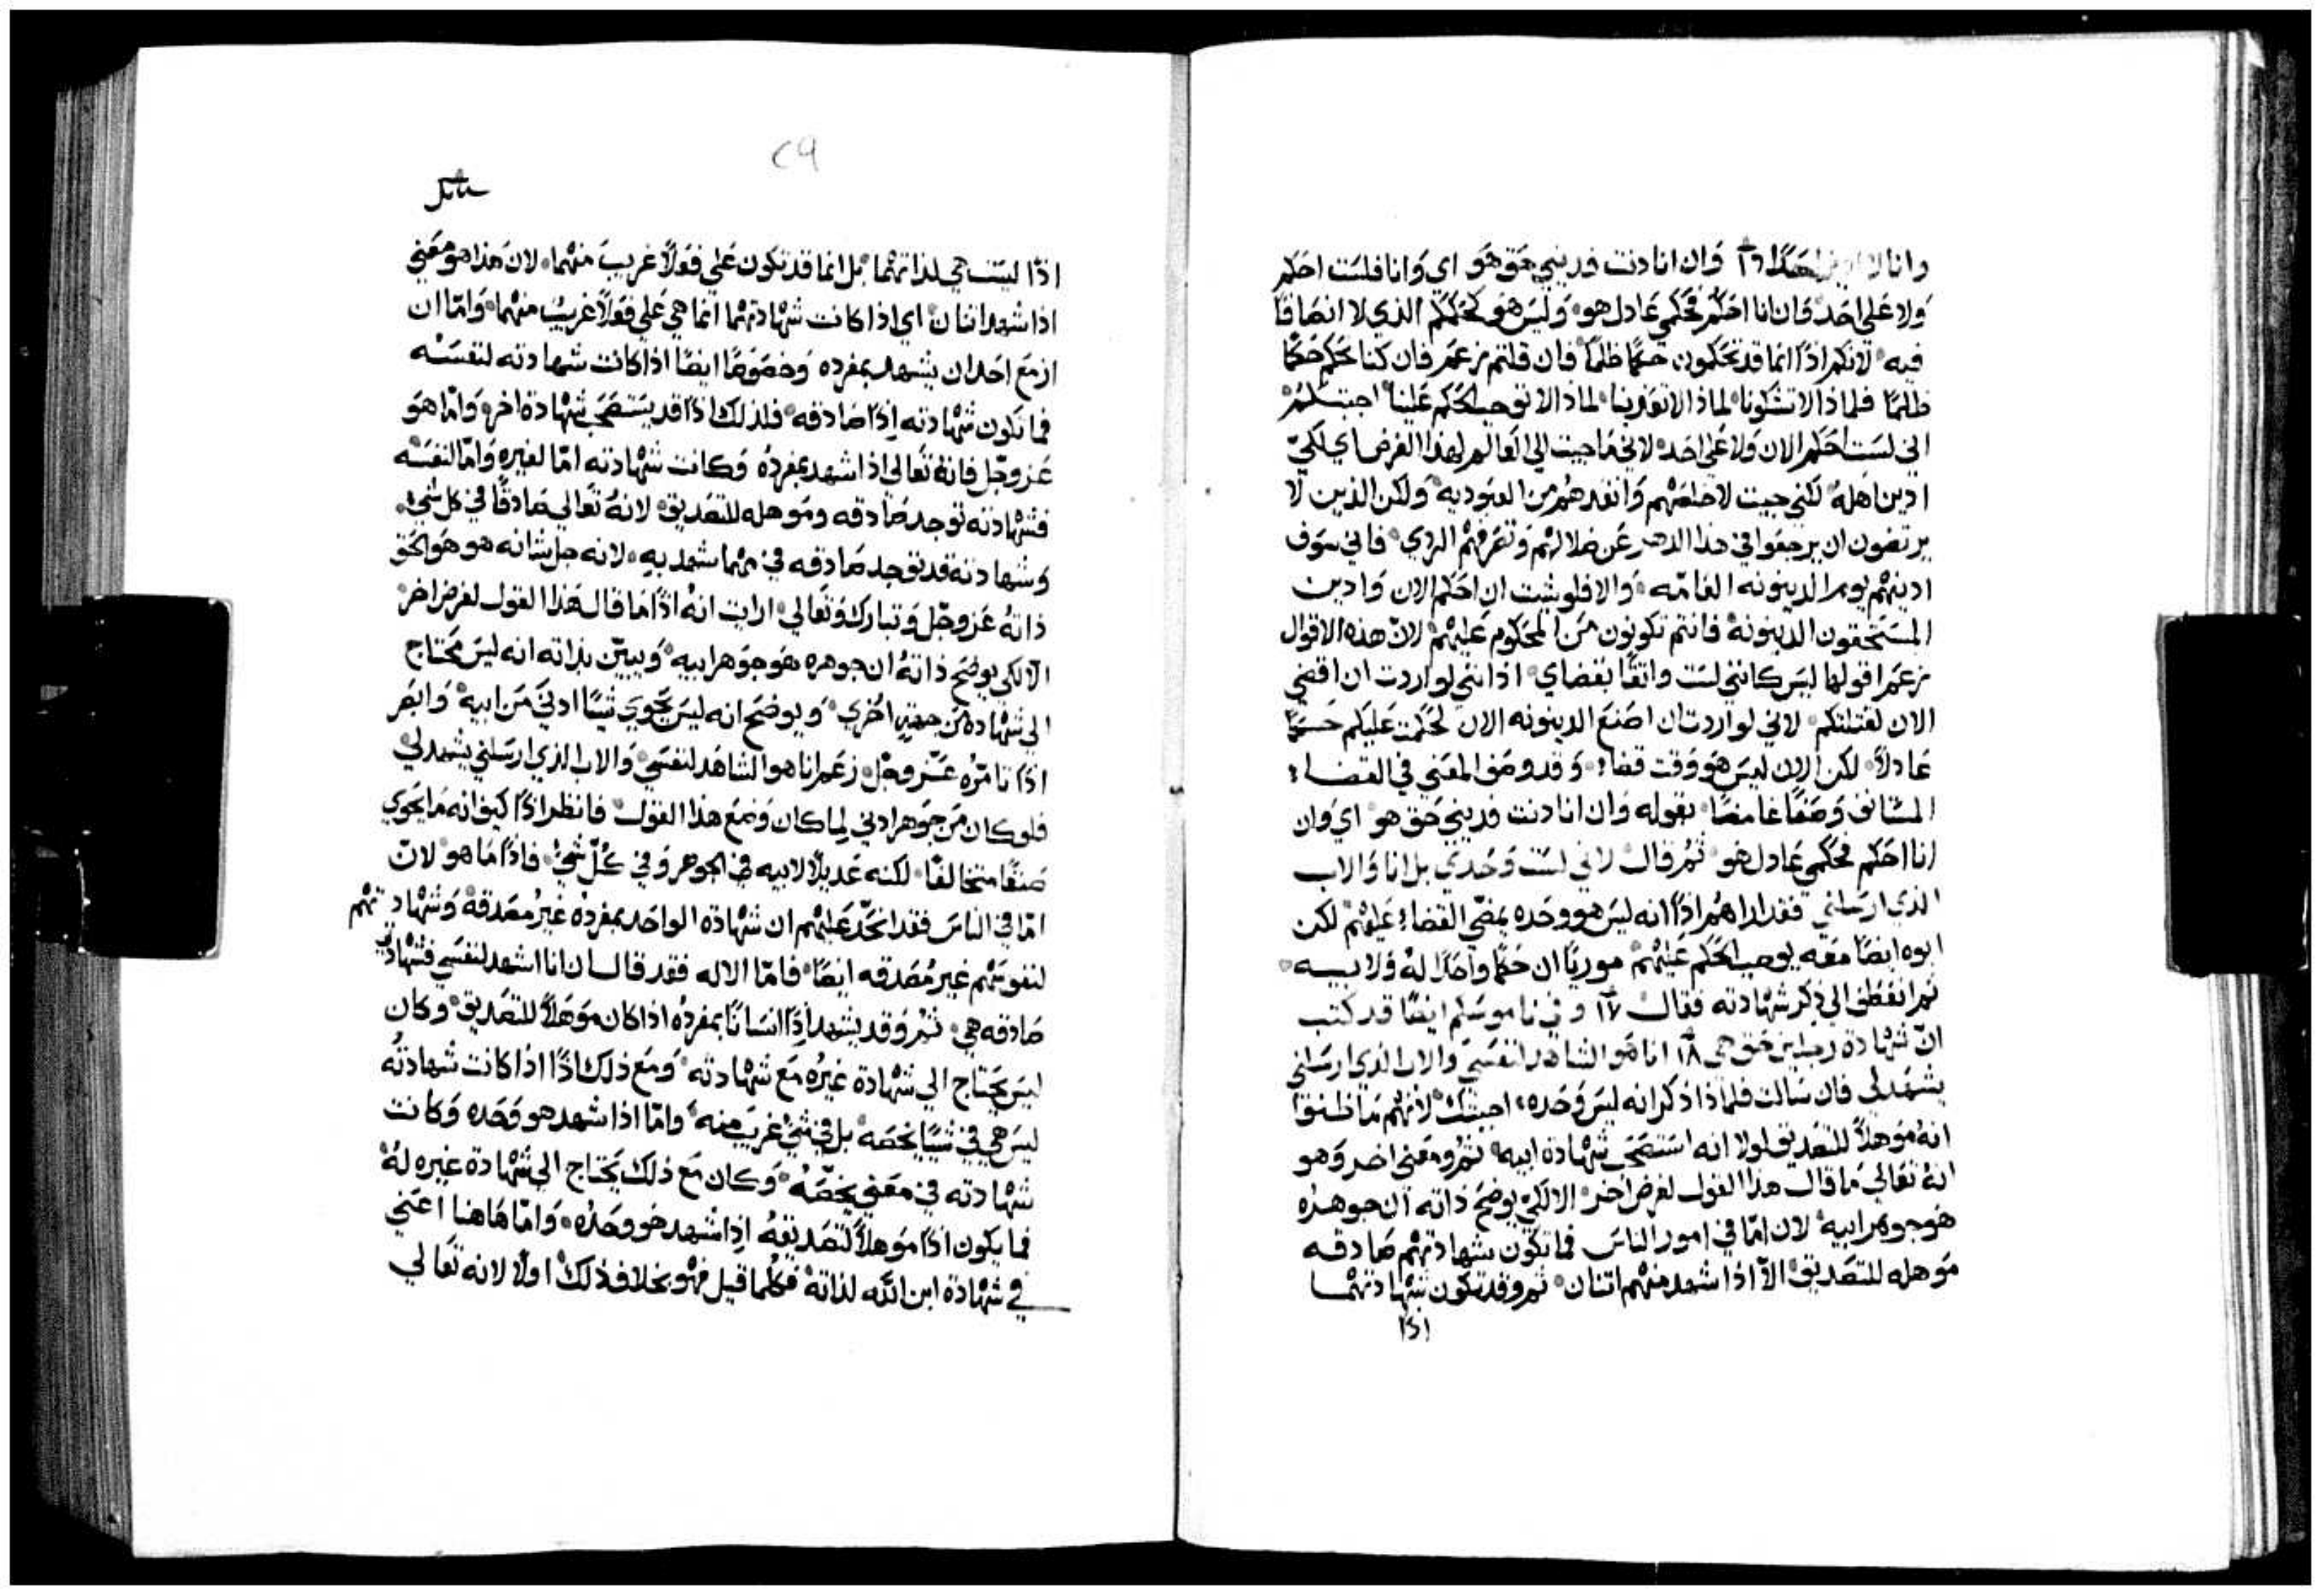 وانا لا ادين احدًا ١٦ وَان انا دنت فديني حَق هَو اي وَانا فلسَت احَكم
وَلا عَلي احَد فَان انا احَكم فحَكمي عَادل هو وَليسَ هَو كحُكمكم الذي لا انصَافًا
فيه لانكم اذًا انما قد تحَكمون حَكمًا ظلمًا فان قلتم نزعَم فان كنا نحَكم حَكمًا
ظلمًا فلماذا لا تشَكونا لماذا لا تفدينا لماذا لا توجب الحَكم عَلينا اجبتكم
اني لسَت احَكم الان وَلا عَلي احَد لاني مَا جيت الي العَالم لهذا الغرض اي لكيّ
ادين اهله لكني جيت لاخلصَهم وَانقدهم من العَبوديه وَلكن الذين لا
يرتضون ان يرجعَوا في هذا الدهر عَن ضلالهم وَتصَرفهم الردي فاني سَوف
ادينهم يوم الدينونه العَامّه وَالا فلو شيت ان احَكم الان وَادين
المسَتحَقون الدينونة فانتم تكونون مَن المحَكوم عَليهم لانّ هذه الاقوال
نزعَم اقولها ليسَ كانني لسَت واتقًا بقضاي اذ انني لو اردت ان اقضي
الان لقتلتكم لاني لو اردت ان اصَنع الدينونه الان لحَكمت عَليكم حَكمًا
عَادلاً لكن الان ليسَ هو وَقت قضاء وَقد وصَف المعَني في القضاء
المسَتانف وَصَفًا غامضًا بقوله وَان انا دنت فديني حَق هو اي وَان
انا احَكم فحَكمي عَادل هو ثم قال لاني لسَت وَحَدي بل انا وَالاب
الذي ارسَلني فقد اراهم اذًا انه ليسَ هو وحَده يمضي القضاء عَليهم لكن
ابوه ايضًا مَعَه يوجب الحَكم عَليهم موريًا ان حَكمًا واحَدًا لهُ وَلابيه
ثم انعَطف الي ذكر شهادته فقال ١٧ وفي ناموسَكم ايضًا قد كتب
انّ شهادة رجلين حَق هي ١٨ انا هَو الشاهد لنفسَي وَالاب الذي ارسَلني
يشهَد لي فان سَالت فلماذا ذكر انه ليسَ وَحَده اجبتك لانهم مَا ظنوا
انهُ مَوهلاً للتصَديق لولا انه اسَتصَحَب شهادة ابيه ثم ومعَني اخر وَهو
انهُ تعَالي مَا قال هذا القول لغرض اخر الا لكيّ يوضحَ ذاته ان جوهرُه
هَو جوهر ابيه لان امّا في امور الناسَ فما تكون شهادتهم صَادقه
مَوهله للتصَديق الّا اذا شهد منهم اتنان ثم وقد تكون شهادتهما
اذا
٢٩
اذًا ليسَت هي لذاتهما بل انما قد تكون عَلي فعَلاً غريبَ منهما لان هَذا هو معَني
اذا شهد اتنان اي اذا كانت شهادتهما انما هي عَلي فعَلاً غريبُ منهما وَامّا ان
ازمَع احَد ان يشهد بمفرده وَخصَوصًا ايضًا اذا كانت شهادته لنفسَه
فما تكون شهادته اِذًا صَادقه فلذلك اذًا قد يسَتصَحَب شهادة اخر وَامّا هَو
عَز وجّل فانهُ تعَالي اذا اشهد بمفردُه وَكانت شهادته امّا لغيره وَامّا لنفسَه
فشهادته توجد صَادقه ومَوهله للتصَديق لانهُ تعَالي صَادقًا في كل شي
وَشهادته قد توجد صَادقه في مهما شهد بهِ لانه جل شانه هو هَو الحَق
ذاتهُ عَز وجّل وَتبارك وَتعَالي ارايت انهُ اذًا مَا قال هَذا القول لغرض اخر
الّا لكي يوضحَ ذاتهُ ان جوهره هَو جَوهر ابيه وَيبيّن بذاته انه ليسَ محَتاج
الي شهادة من جهةٍ اخَري وَيوضحَ انه ليسَ يحَوي شيًا ادنيَ مَن ابيه وَابصَر
اذًا تامّرُه عَزّ وجَل زعَم انا هو الشاهَد لنفسَي وَالاب الذي ارسَلني يشهد لي
فلو كان مَن جَوهر ادني لما كان وَضعَ هذا القول فانظر اذًا كيف انه مَا يحَوي
صَنفًا متخالفًا لكنه عَديلاً لابيه في الجوهر وَفي كلّ شي فاذًا مَا هو لانّ
امّا في الناسَ فقد اتحَدّ عَليهم ان شهادة الواحَد بمفرده غيرُ مصَدقة وَشهادتهم
لنفوسَهم غير مُصَدقه ايضًا فامّا الاله فقد قال ان انا اشهد لنفسَي فشهادتي
صَادقه هي ثم وَقد يشهد اذًا انسَانًا بمفردُه اذا كان مَوَهَلاً للتصَديق وَكان
ليسَ يحَتاج الي شهادة غيرُه مَع شهادته وَمَع ذلك اذًا اذا كانت شهادتُه
ليسَ هي في شيًا يخصَه بل في شي غريب منه وَامّا اذا شهد هو وَحَده وَكانت
شهادته في مَعَني يخصّه وَكان مَع ذلك يحَتاج الي شهادة غيره لهُ
فما يكون اذًا مَوهلاً لتصَديقهُ اِذا شهد هَو وحَدُه وَامّا هَاهنا اعَني
في شهادة ابن اللّه لذاتهُ فكلما قيل فهو بخلاف ذلك اولاً لانه تعَالي